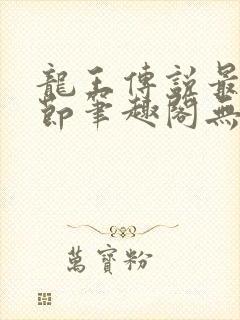 龍王傳說最
節筆趣閣無
萬寶粉